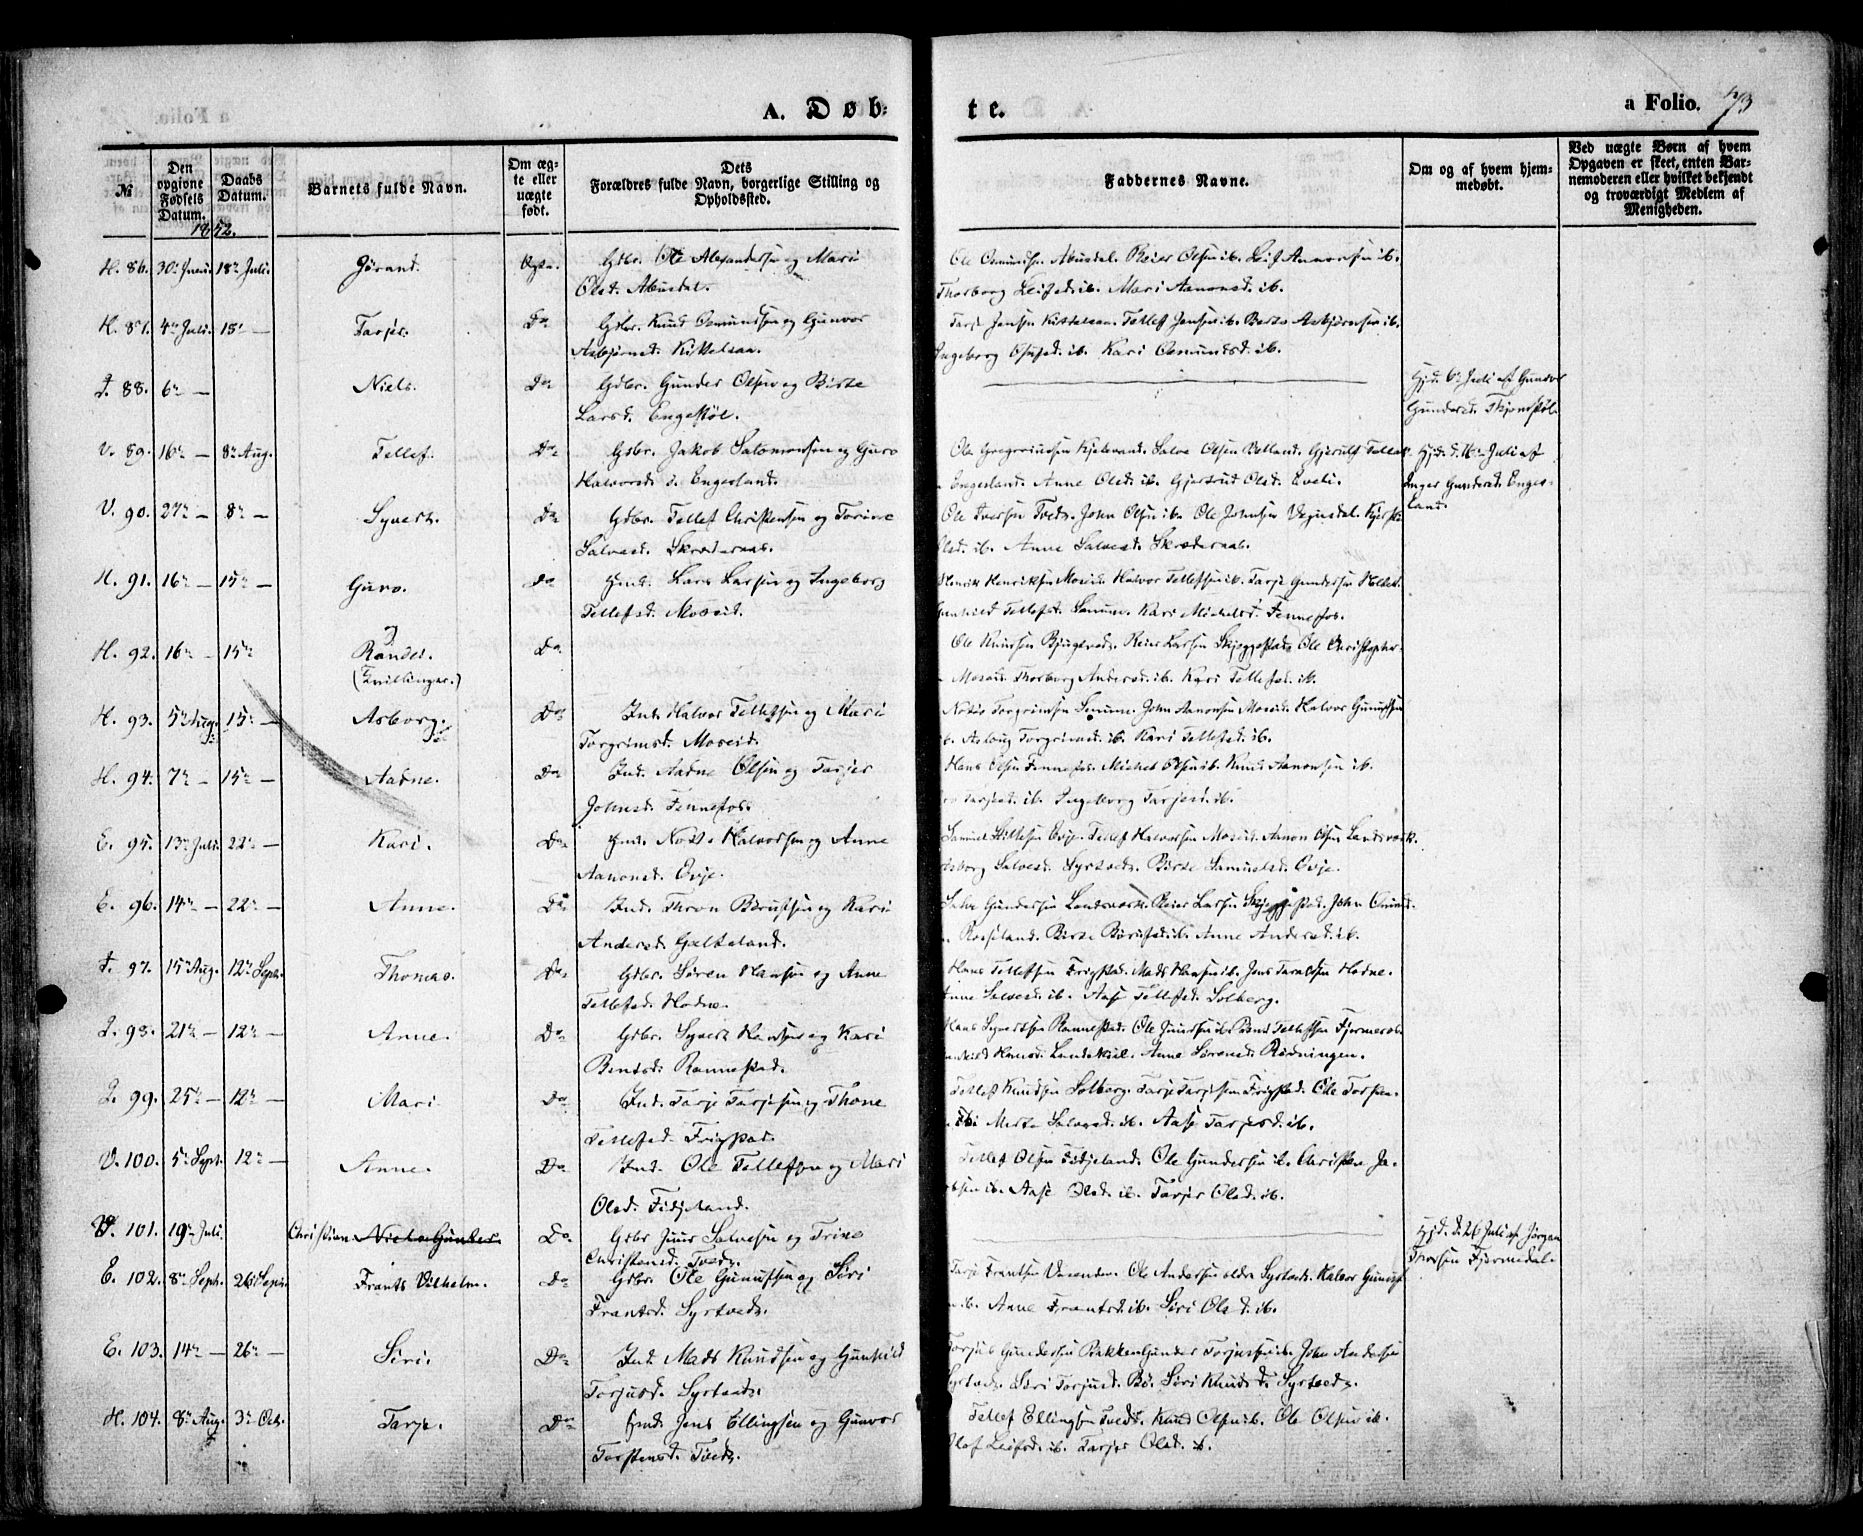 A. Døb-
te.
a Folio. 73
№
Den opgivne Fødsels Datum.
Daabs Datum.
Barnets fulde Navn.
Om ægte eller uægte født.
Dets Forældres fulde Navn, borgerlige Stilling og Opholdssted.
Faddernes Navne.
Om og af hvem hjemmedøbt.
Ved uægte Børn af hvem Opgaven er skeet, enten Barnemoderen eller hvilket bekjendt og troværdigt Medlem af Menigheden.
1852.
H. 86. 30 Juni. 18 Juli. Jørand. Ægte. Gdbr. Ole Alexandersen og Mari
Olsd. Abusdal.
Ole Osmundsen Abusdal. Reier Olsen ib. Leif Aanonsen ib.
Thorborg Leifsd. ib. Mari Aanonsd. ib.
H. 87. 4 Juli. 15 — Tarjer. Do Gdbr. Knud Osmundsen og Gunvor
Asbjørnsd. Kittelsaa.
Tarje Jensen Kittelsaa. Tellef Jensen ib. Asbjørnsen ib.
Ingeborg ib. Kari Osmundsd. ib.
88. 6 — Niels. Do Gdbr. Gunder Olsen og Birte
Larsd. Engestøl.
Hjd. 6 Juli af Gunvor
Gundersd.
V. 89. 16 — 8 Aug. Tellef. Do Gdbr. Jakob Salomonsen og Guro
Halvorsd. Engesland.
Ole Gregoriussen Kjelevand. Salve Olsen
Engesland. Anne Olsd. ib. Gjertrud Olsd.
Hjd. d. 16 Juli af
Inger Gundersd. Enges-
land.
V. 90. 27 — 8 — Syvert. Do Gdbr. Tellef Christensen og Torine
Salvesd. Skrøderaas.
Ole Iversen Tveds. John Olsen ib. Ole Johnsen Vegusdal.
Olsd. ib. Anne Salvesd. Skrøderaas.
H. 91. 16 — 15 — Guro. Do Ind. Lars Larsen og Ingeborg
Tellefsd. Moseid.
Henrik Henriksen Moseid. Halvor Tellefsen ib. Tarje Gundersen
Gunhild Tellefsd. Senum. Kari Michelsd. Fennefos.
H. 92. 16 — 15 Randei. Do
(Tvillinger.)
Ole Knudsen Reier Larsen Skjeggestad. Ole Christopher-
Moseid. Thorborg Andersd. ib. Kari Tellefsd. ib.
H. 93. 5 Aug. 15 — Asborg. Do Ind. Halvor Tellefsen og Mari
Torgrimsd. Moseid.
Torgrimsen Senum. John Aanonsen Moseid. Halvor
ib. Aslaug Torgrimsd. ib. Kari Tellefsd. ib.
H. 94. 7 — 15 — Aadne. Do Ind. Aadne Olsen og Tarjer
Johnsd. Fennefos.
Hans Olsen Fennefos. Michel Olsen ib. Knud Aanonsen ib.
Tarjesd. ib. Ingeborg Tarjesd. ib.
E. 95. 13 Juli. 22 — Kari. Do Ind. Halvorsen og Anne
Aanonsd. Evje.
Samuel Evje. Tellef Halvorsen Moseid. Aanon Olsen Landsverk.
Salvesd. Syrtveds. Birte Samuelsd. Evje.
E. 96. 14 — 22 — Anne. Do Ind. Thron Børufsen og Kari
Andersd. Galteland.
Salve Gundersen Landsverk. Reier Larsen Skjeggestad. John
Roeseland. Birte Børufsd. ib. Anne Andersd. ib.
97. 15 Aug. 12 Septr. Thomas. Do Gdbr. Søren Hansen og Anne
Tellefsd. Hodne.
Hans Tellefsen Frigstad. Mads Hansen ib. Jens Hodne.
Anne Salvesd. ib. Aase Tellefsd. Solberg.
98. 21 — 12 — Anne. Do Gdbr. Syvert Hansen og Kari
Bendsd. Rannestad.
Hans Syvertsen Rannestad. Ole Tellefsen
Hansd. Anne Sørensd. Røiningen.
99. 25 — 12 — Mari Do Ind. Tarje Tarjesen og Thone
Tellefsd. Frigstad.
Tellef Knudsen Solberg. Tarje Tarjesen Frigstad. Ole
ib. Salvesd. ib. Aase Tarjesd. ib.
V. 100. 5 Septr. 12 — Anne. Do Ind. Ole Tellefsen og Mari
Olsd. Fidjeland.
Tellef Olsen Fidjeland. Ole Gundersen ib. Christen Ja-
ib. Aase Olsd. ib. Tarjer Olsd. ib.
101. 19 Juli Christian Niels Gunder. Do Gdbr. Salvesen og Trine
Christensd. Tveds.
Hjd. d. 26 Juli af Jørgen
E. 102. 8 Septr. 26 Septr. Frants Vilhelm. Do Gdbr. Ole og Siri
Frantsd. Syrtveds.
Tarje Frantsen Ole Andersen Syrtveds. Halvor
ib. Anne Frantsd. ib. Siri Olsd. ib.
E. 103. 14 — 26 — Siri. Do Ind. Mads Knudsen og Gunhild
Torjusd. Syrtveds.
Torjus Gundersen Bakken. Gunder Torjussen ib. John Andersen
Syrtveds. Siri Torjusd. Bø. Siri Knudsd. Syrtveds.
H. 104. 8 Aug. 3 Octr. Tarje. Do Ind. Jens Ellingsen og Gunvor
Torstensd. Tveds.
Tellef Ellingsen Tveds. Knud Olsen ib. Ole Olsen ib.
Leifsd. ib. Tarjer Olsd. ib.